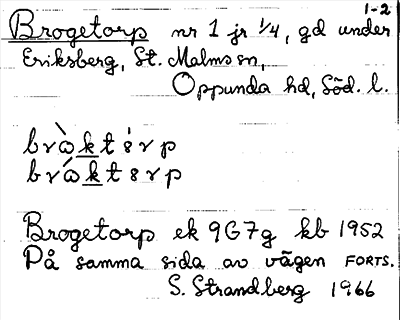 1-2
Brogetorp nr 1 jr 1/4, gd under
Eriksberg, St. Malms sn,
Oppunda hd, Söd. l.
Brogetorp ek 9G7g kb 1952
På samma sida av vägen FORTS.
S. Strandberg 1966